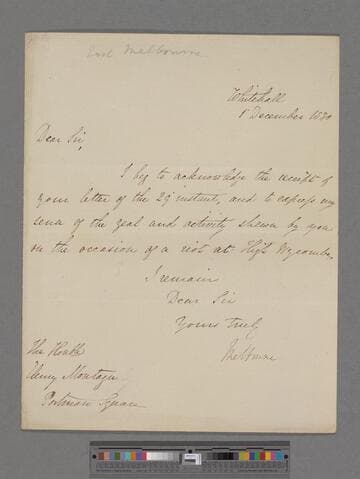 Lord Melbourne
Whitehall
1 December 1830
Dear Sir,
I beg to acknowledge the receipt of
your letter of the 29 instant, and to express my
sense of the zeal and activity shewn by you
on the occasion of a riot at High Wycombe,
I remain
Dear Sir
Yours truly
Melbourne
The Honble
Montagu
Portman Square